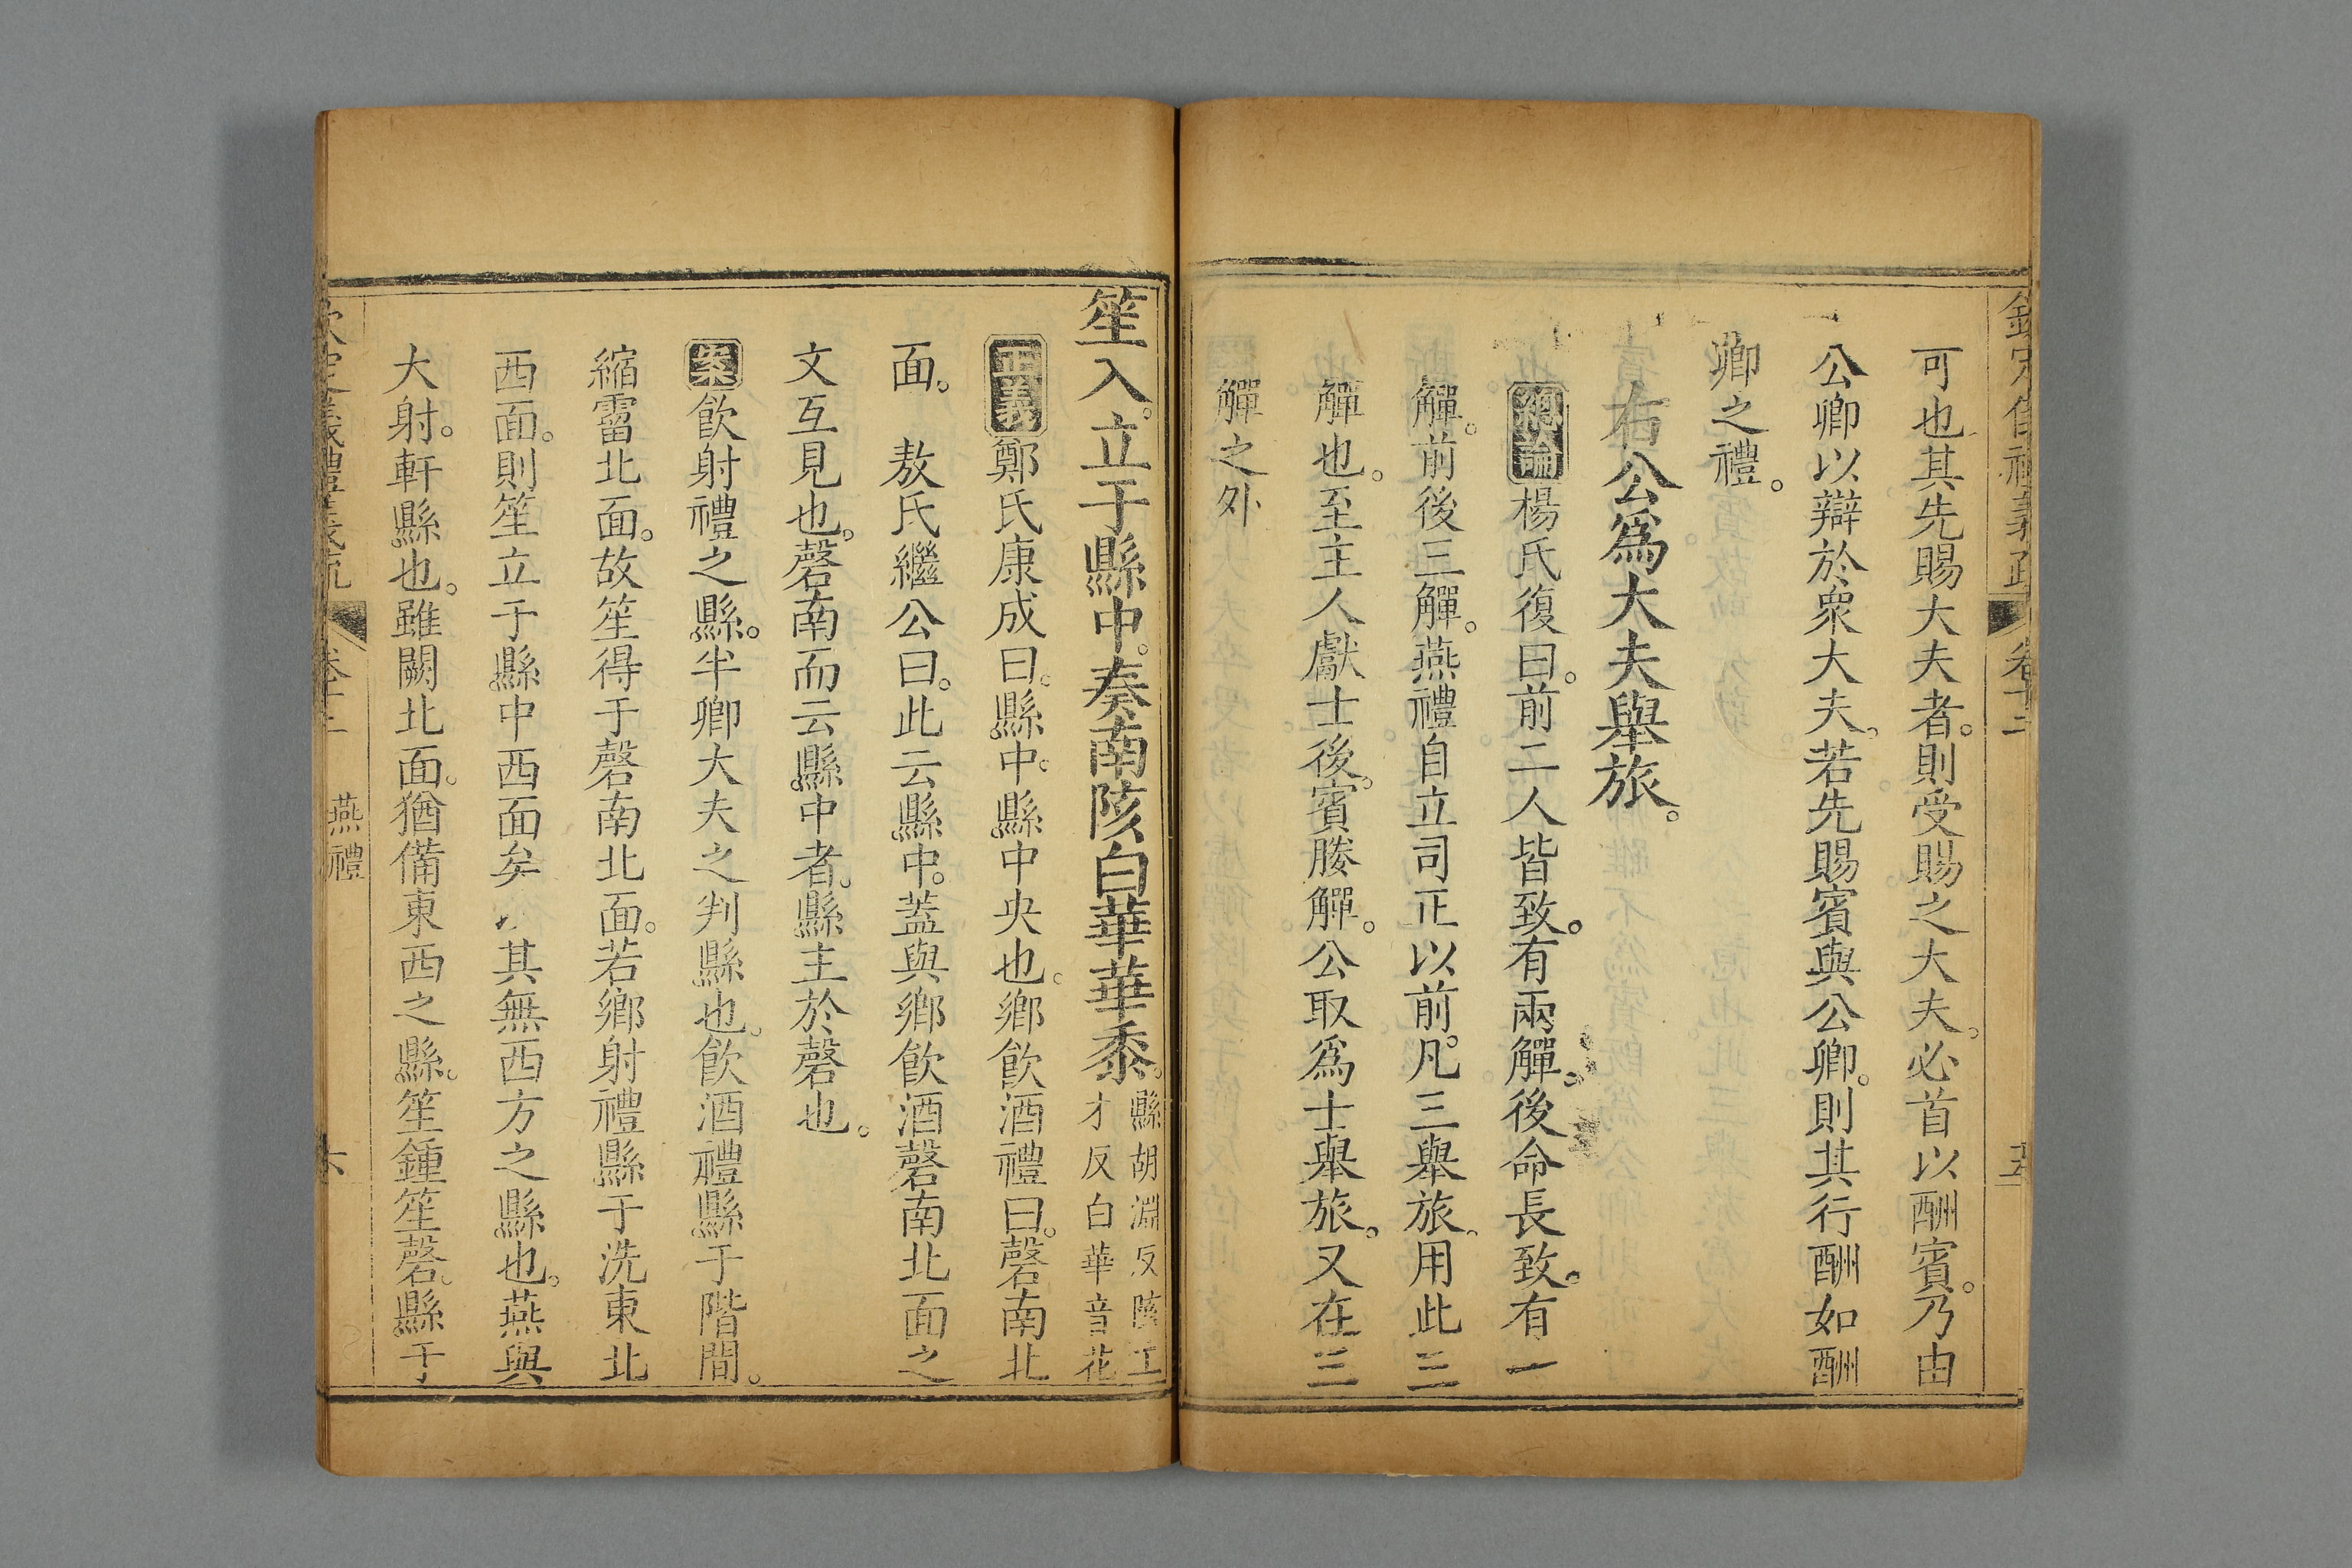 可也其先賜大夫者。則受賜之大夫。必首以酬賓。乃由
公卿以辯於衆大夫。若先賜賓與公卿。則其行酬如酬
卿之禮。
右公爲大夫舉旅。
總論楊氏復曰。前二人皆致。有兩觶。後命長致。有一
觶。前後三觶。燕禮自立司正以前。凡三舉旅。用此三
觶也。至主人獻士後。賓媵觶。公取爲士舉旅。又在三
觶之外
笙入。立于縣中。奏南陔白華華黍。
縣胡淵反陔工
才反白華音花
正義鄭氏康成曰。縣中。縣中央也。鄉飲酒禮曰。磬南北
面。 敖氏繼公曰。此云縣中。蓋與鄉飲酒磬南北面之
文互見也。磬南而云縣中者。縣主於磬也。
案飲射禮之縣。半卿大夫之判縣也。飲酒禮縣于階間。
縮霤北面。故笙得于磬南北面。若鄉射禮縣于洗東北
西面。則笙立于縣中西面矣 其無西方之縣也。燕與
大射。軒縣也。雖闕北面。猶備東西之縣。笙鍾笙磬。縣于
燕禮